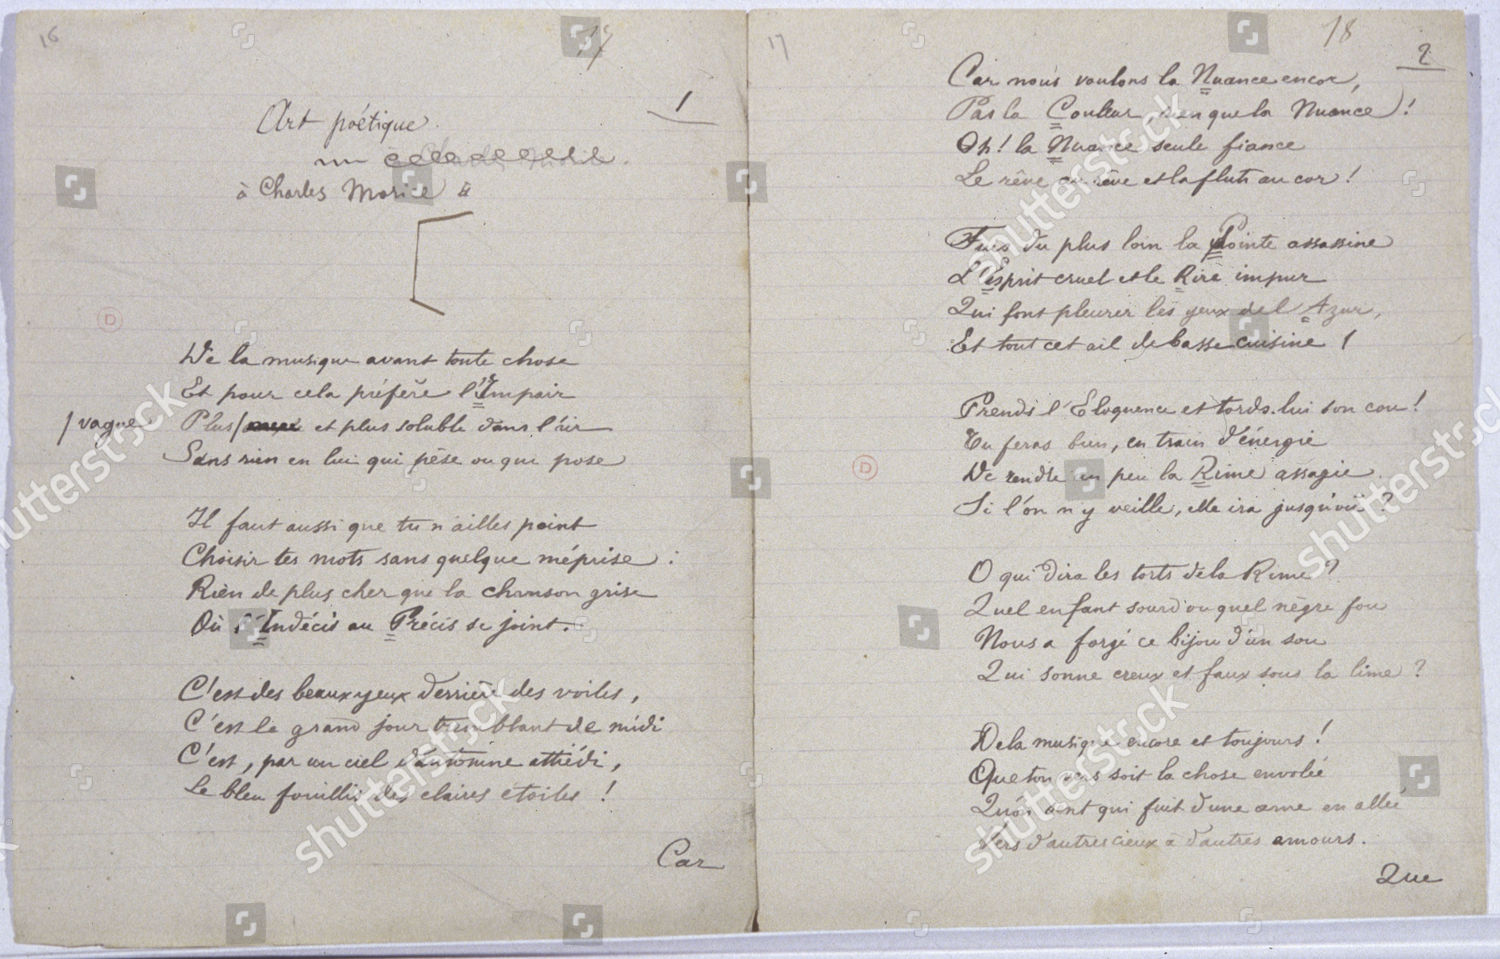 16
17
1
Art poétique.
à Charles Morice
De la musique avant toute chose
Et pour cela préfère l'Impair
/ vague Plus / et plus soluble dans l'air
Sans rien en lui qui pèse ou qui pose
Il faut aussi que tu n'ailles point
Choisir tes mots sans quelque méprise :
Rien de plus cher que la chanson grise
Où l'Indécis au Précis se joint.
C'est des beaux yeux derrière des voiles,
C'est le grand jour tremblant de midi
C'est, par un ciel d'automne attiédi,
Le bleu fouillis des claires étoiles !
Car
17
18
2
Car nous voulons la Nuance encor,
Pas la Couleur, rien que la Nuance !
Oh ! la Nuance seule fiance
Le rêve au rêve et la flûte au cor !
Fuis du plus loin la Pointe assassine
L'Esprit cruel et le Rire impur
Qui font pleurer les yeux de l'Azur,
Et tout cet ail de basse cuisine !
Prends l'Eloquence et tords-lui son cou !
Tu feras bien, en train d'énergie
De rendre un peu la Rime assagie
Si l'on n'y veille, elle ira jusqu'où ?
O qui dira les torts de la Rime ?
Quel enfant sourd ou quel nègre fou
Nous a forgé ce bijou d'un sou
Qui sonne creux et faux sous la lime ?
De la musique encore et toujours !
Que ton vers soit la chose envolée
Qu'on sent qui fuit d'une âme en allée
Vers d'autres cieux à d'autres amours.
Que
D
D
shutterstock
shutterstock
shutterstock
shutterstock
shutterstock
shutterstock